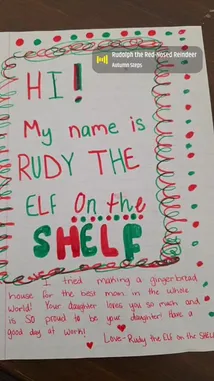 Rudolph the Red-Nosed Reindeer
Autumn Steps
HI!
My name is
RUDY THE
ELF On the
SHELF
I tried making a gingerbread
house for the best mom in the whole
world! Your daughter loves you so much and
is SO proud to be your daughter! Have a
good day at work!
Love-Rudy the Elf on the SHELF